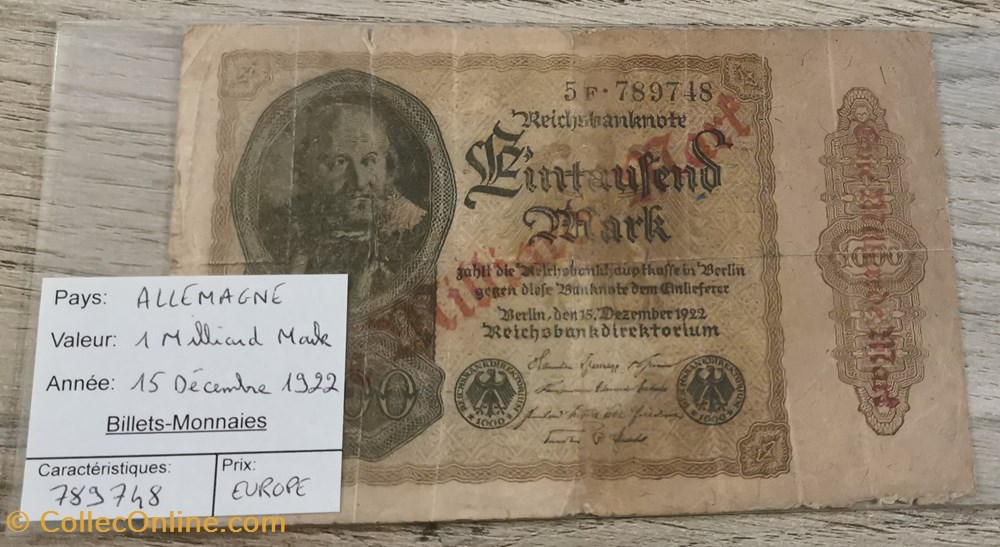 5F·789748
Reichsbanknote
Eintausend
Mark
zahlt die Reichsbankhauptkasse in Berlin
gegen diese Banknote dem Einlieferer
Berlin, den 15. Dezember 1922
Reichsbankdirektorium
REICHSBANKDIREKTORIUM
1000
REICHSBANKDIREKTORIUM
1000
Mark
1000
Pays: ALLEMAGNE
Valeur: 1 Milliard Mark
Année: 15 Décembre 1922
Billets-Monnaies
Caractéristiques:
789748
Prix:
EUROPE
© CollecOnline.com